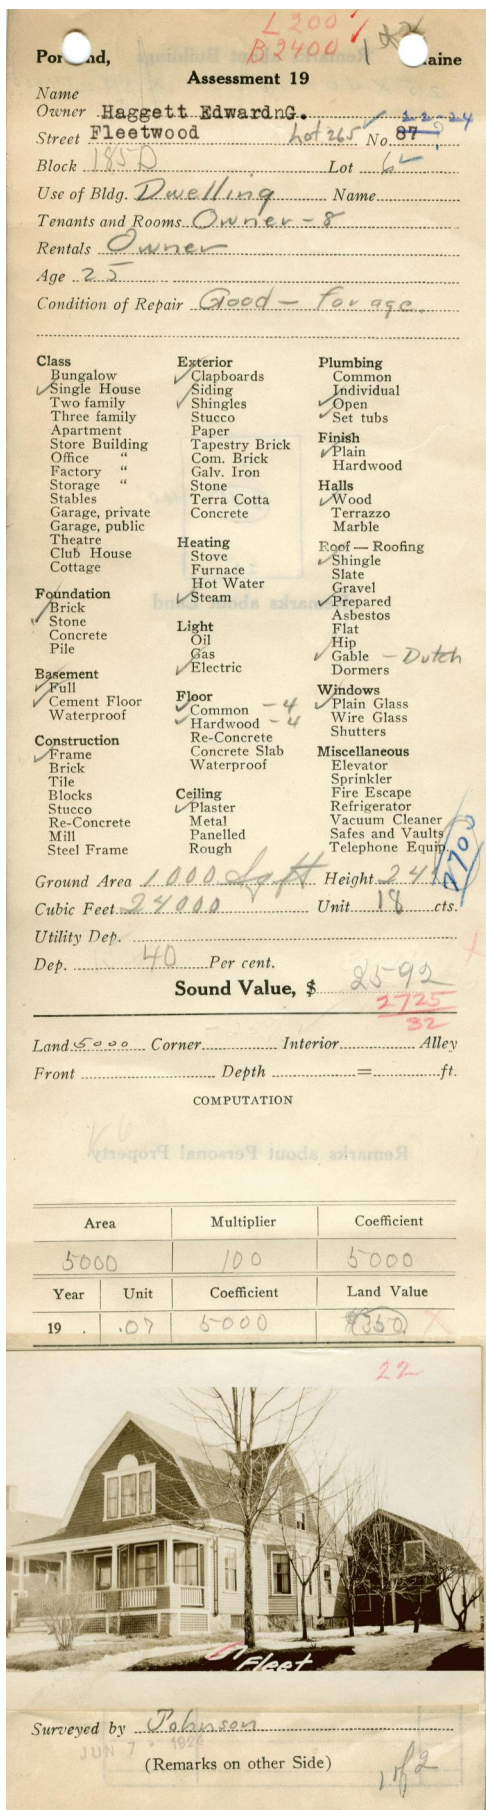 L 200
B 2400
Portland, Maine
Assessment 19
Name
Owner Haggett EdwardnG.
Street Fleetwood Lot 265 No. 87
Block 185 D Lot 6
Use of Bldg. Dwelling Name
Tenants and Rooms Owner - 8
Rentals Owner
Age 25
Condition of Repair Good - for age.
Class
Bungalow
Single House
Two family
Three family
Apartment
Store Building
Office "
Factory "
Storage "
Stables
Garage, private
Garage, public
Theatre
Club House
Cottage
Foundation
Brick
Stone
Concrete
Pile
Basement
Full
Cement Floor
Waterproof
Construction
Frame
Brick
Tile
Blocks
Stucco
Re-Concrete
Mill
Steel Frame
Exterior
Clapboards
Siding
Shingles
Stucco
Paper
Tapestry Brick
Com. Brick
Galv. Iron
Stone
Terra Cotta
Concrete
Heating
Stove
Furnace
Hot Water
Steam
Light
Oil
Gas
Electric
Floor
Common - 4
Hardwood - 4
Re-Concrete
Concrete Slab
Waterproof
Ceiling
Plaster
Metal
Panelled
Rough
Plumbing
Common
Individual
Open
Set tubs
Finish
Plain
Hardwood
Halls
Wood
Terrazzo
Marble
Roof — Roofing
Shingle
Slate
Gravel
Prepared
Asbestos
Flat
Hip
Gable - Dutch
Dormers
Windows
Plain Glass
Wire Glass
Shutters
Miscellaneous
Elevator
Sprinkler
Fire Escape
Refrigerator
Vacuum Cleaner
Safes and Vaults
Telephone Equip.
2700
Ground Area 1000 Sq ft Height 24
Cubic Feet 24000 Unit 18 cts.
Utility Dep.
Dep. 40 Per cent.
Sound Value, $ 2592
2725
32
Land 5000 Corner Interior Alley
Front Depth = ft.
COMPUTATION
Remarks about Personal Property
Area Multiplier Coefficient
5000 100 5000
Year Unit Coefficient Land Value
19 . .07 5000 $350
22
Fleet
Surveyed by Johnson
JUN 7 - 1924
(Remarks on other Side)
1 of 2